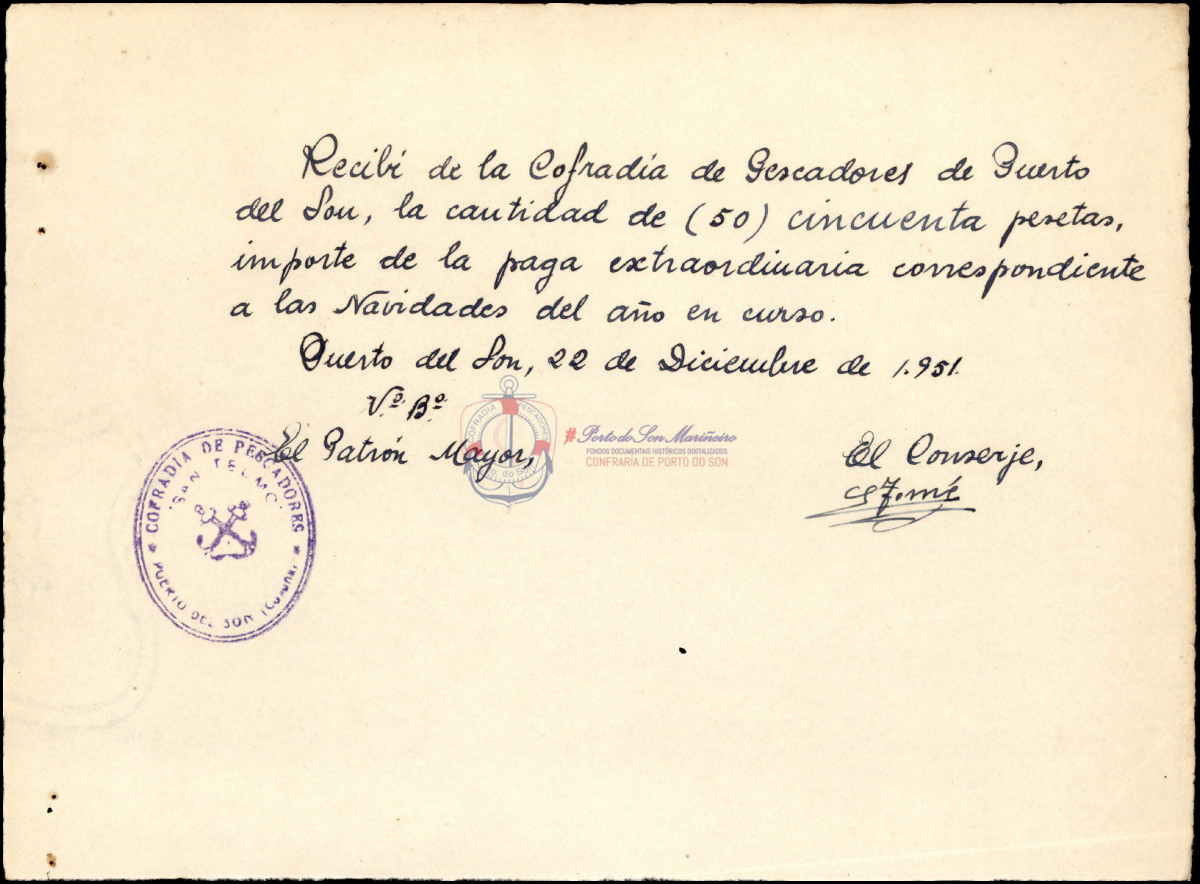 Recibí de la Cofradía de Pescadores de Puerto
del Son, la cantidad de (50) cincuenta pesetas,
importe de la paga extraordinaria correspondiente
a las Navidades del año en curso.
Puerto del Son, 22 de Diciembre de 1.951.
Vº Bº
El Patrón Mayor,
El Conserje,
COFRADIA DE PESCADORES
"SAN TELMO"
PUERTO DEL SON (Coruña)
COFRADIA PESCADORES
Pto. do Son
#Porto do Son Mariñeiro
FONDOS DOCUMENTAIS HISTÓRICOS DIXITALIZADOS
CONFRARÍA DE PORTO DO SON